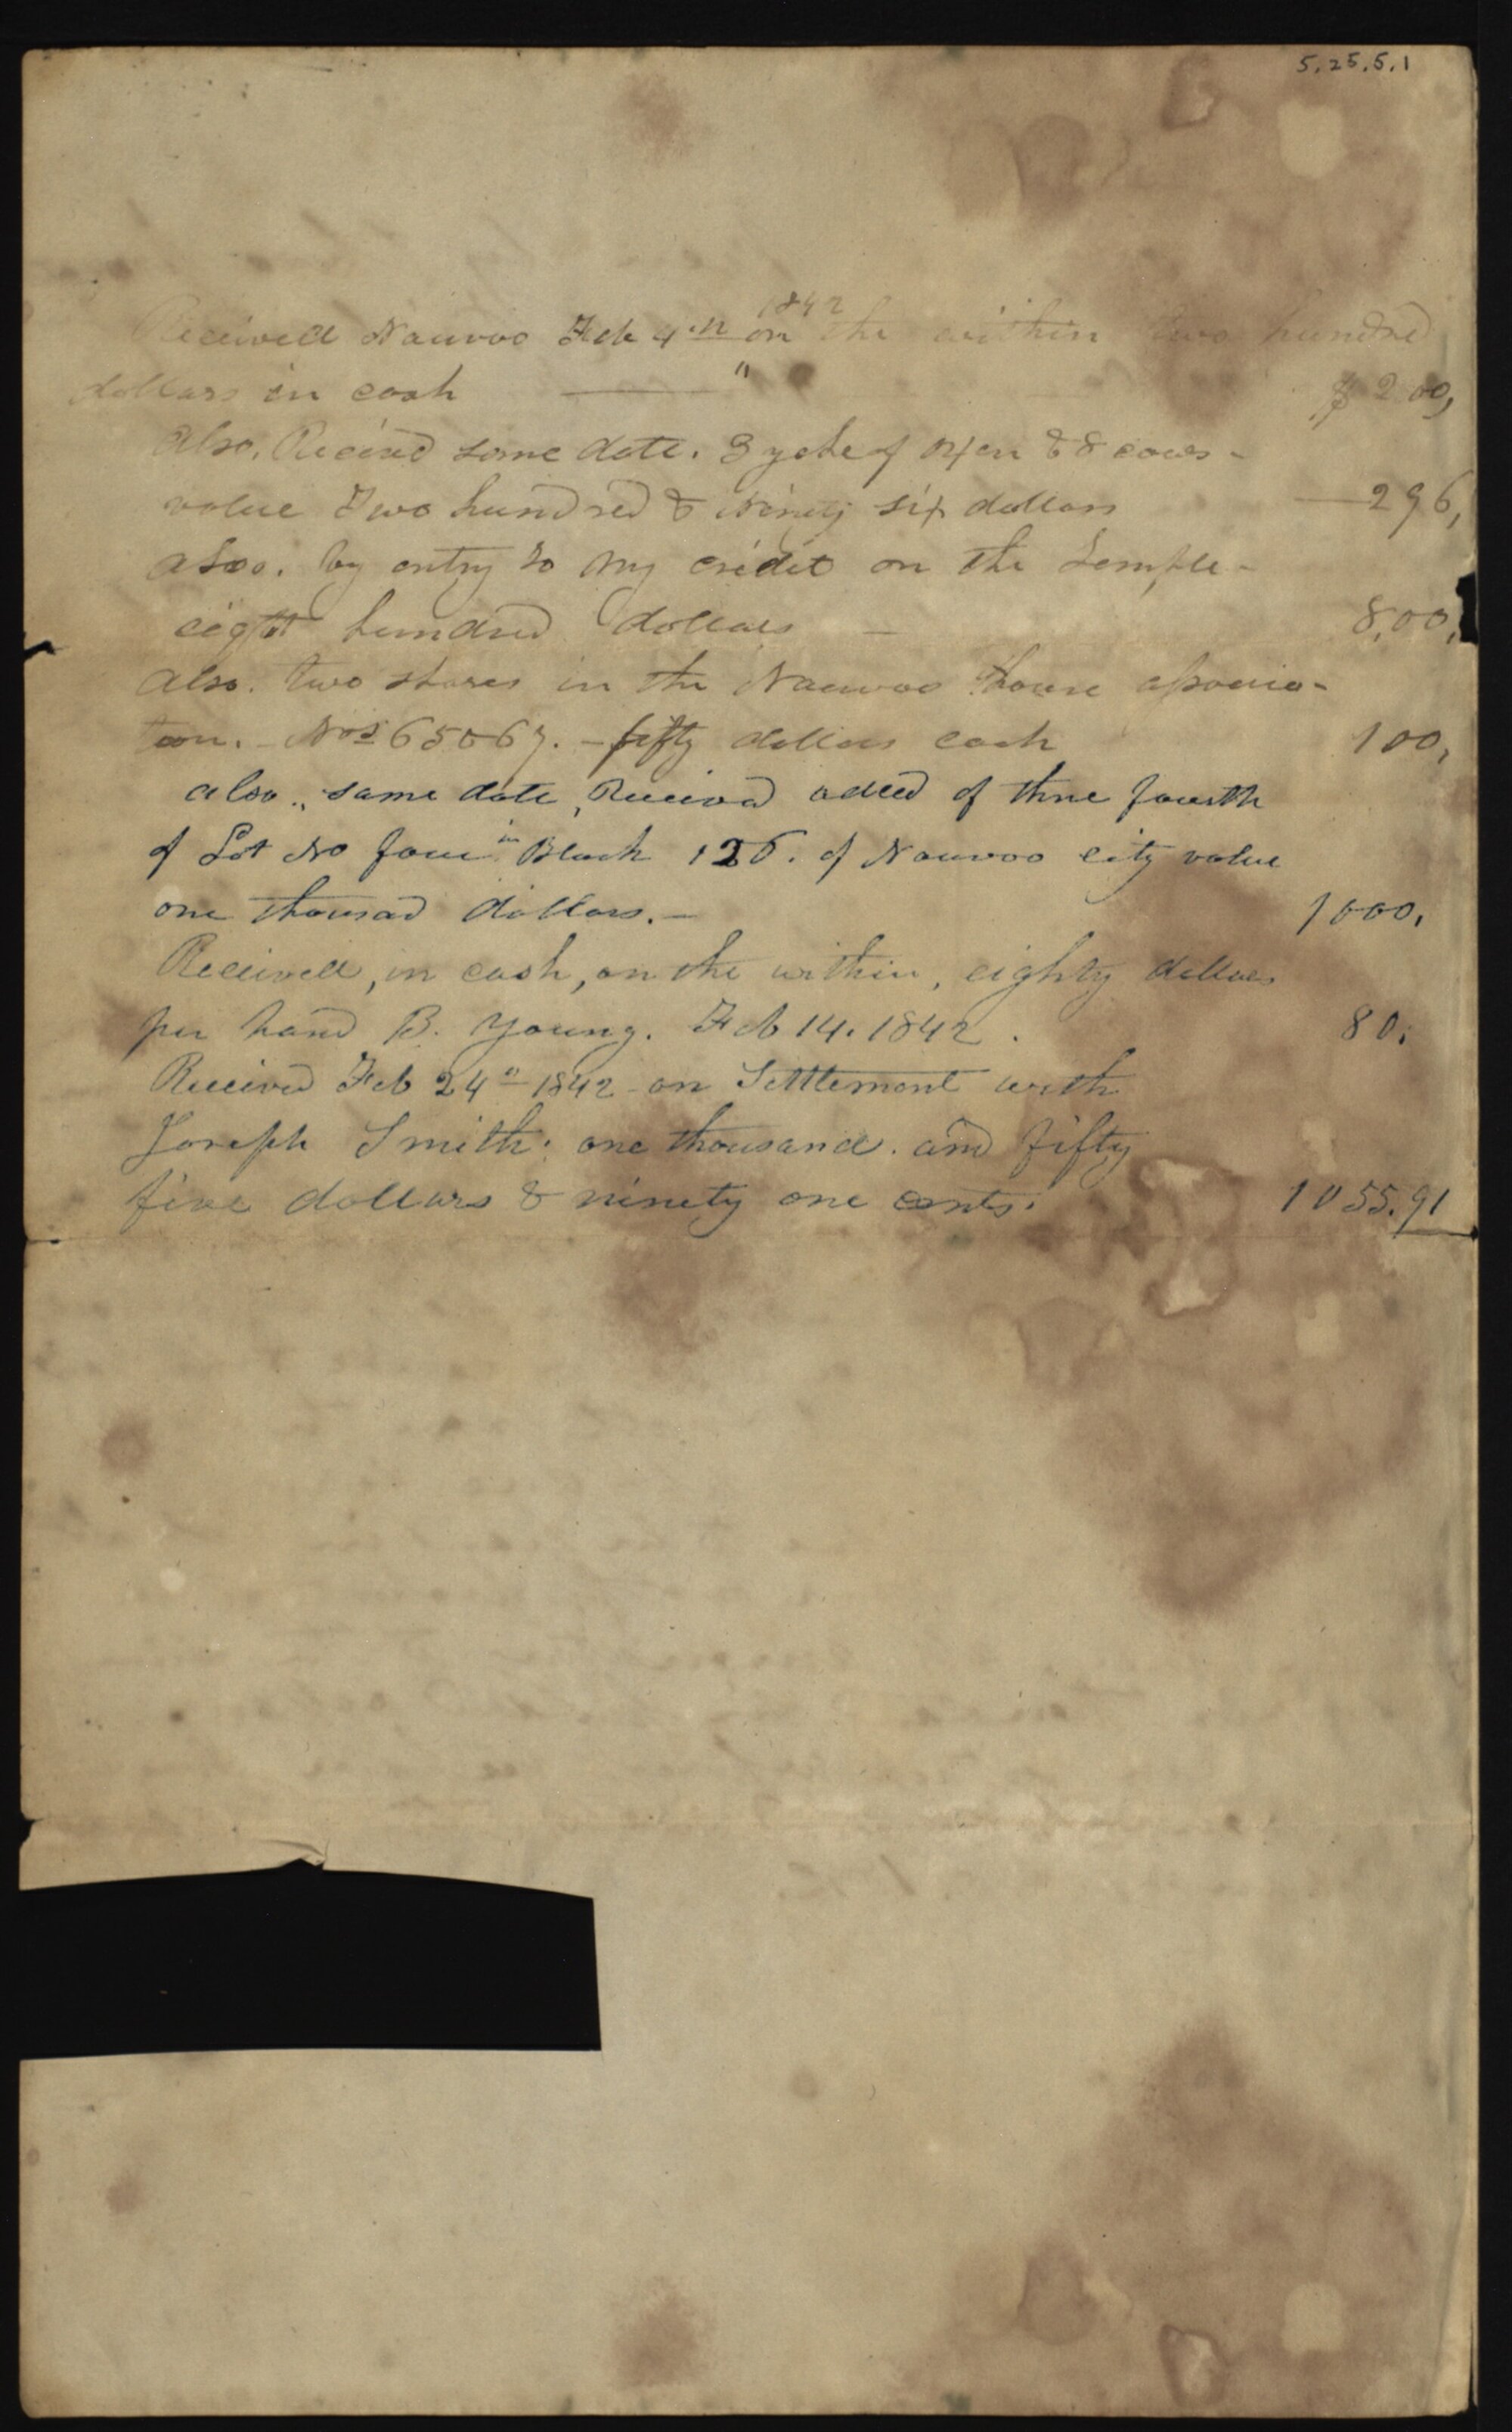 5.25.5.1
1842
Received Nauvoo Feb 4th on the within two hundred
dollars in cash — " $200,
Also, Received same date. 3 yoke of Oxen & 8 cows -
value Two hundred & Ninety six dollars — 296,
also. by entry to my credit on the Temple -
eight hundred dollars — 8,00,
Also. two shares in the Nauvoo House associa-
tion. - Nos 65 & 67. - fifty dollars each 100,
also., same date, Received a deed of three fourth
of Lot No four in Block 126. of Nauvoo city value
one thousad dollars. — 1000.
Received, in cash, on the within, eighty dollars
per hand B. Young. Feb 14. 1842. 80.
Received Feb 24" 1842 - on Settlement with
Joseph Smith. one thousand. and fifty
five dollars & ninety one cents. 1055.91